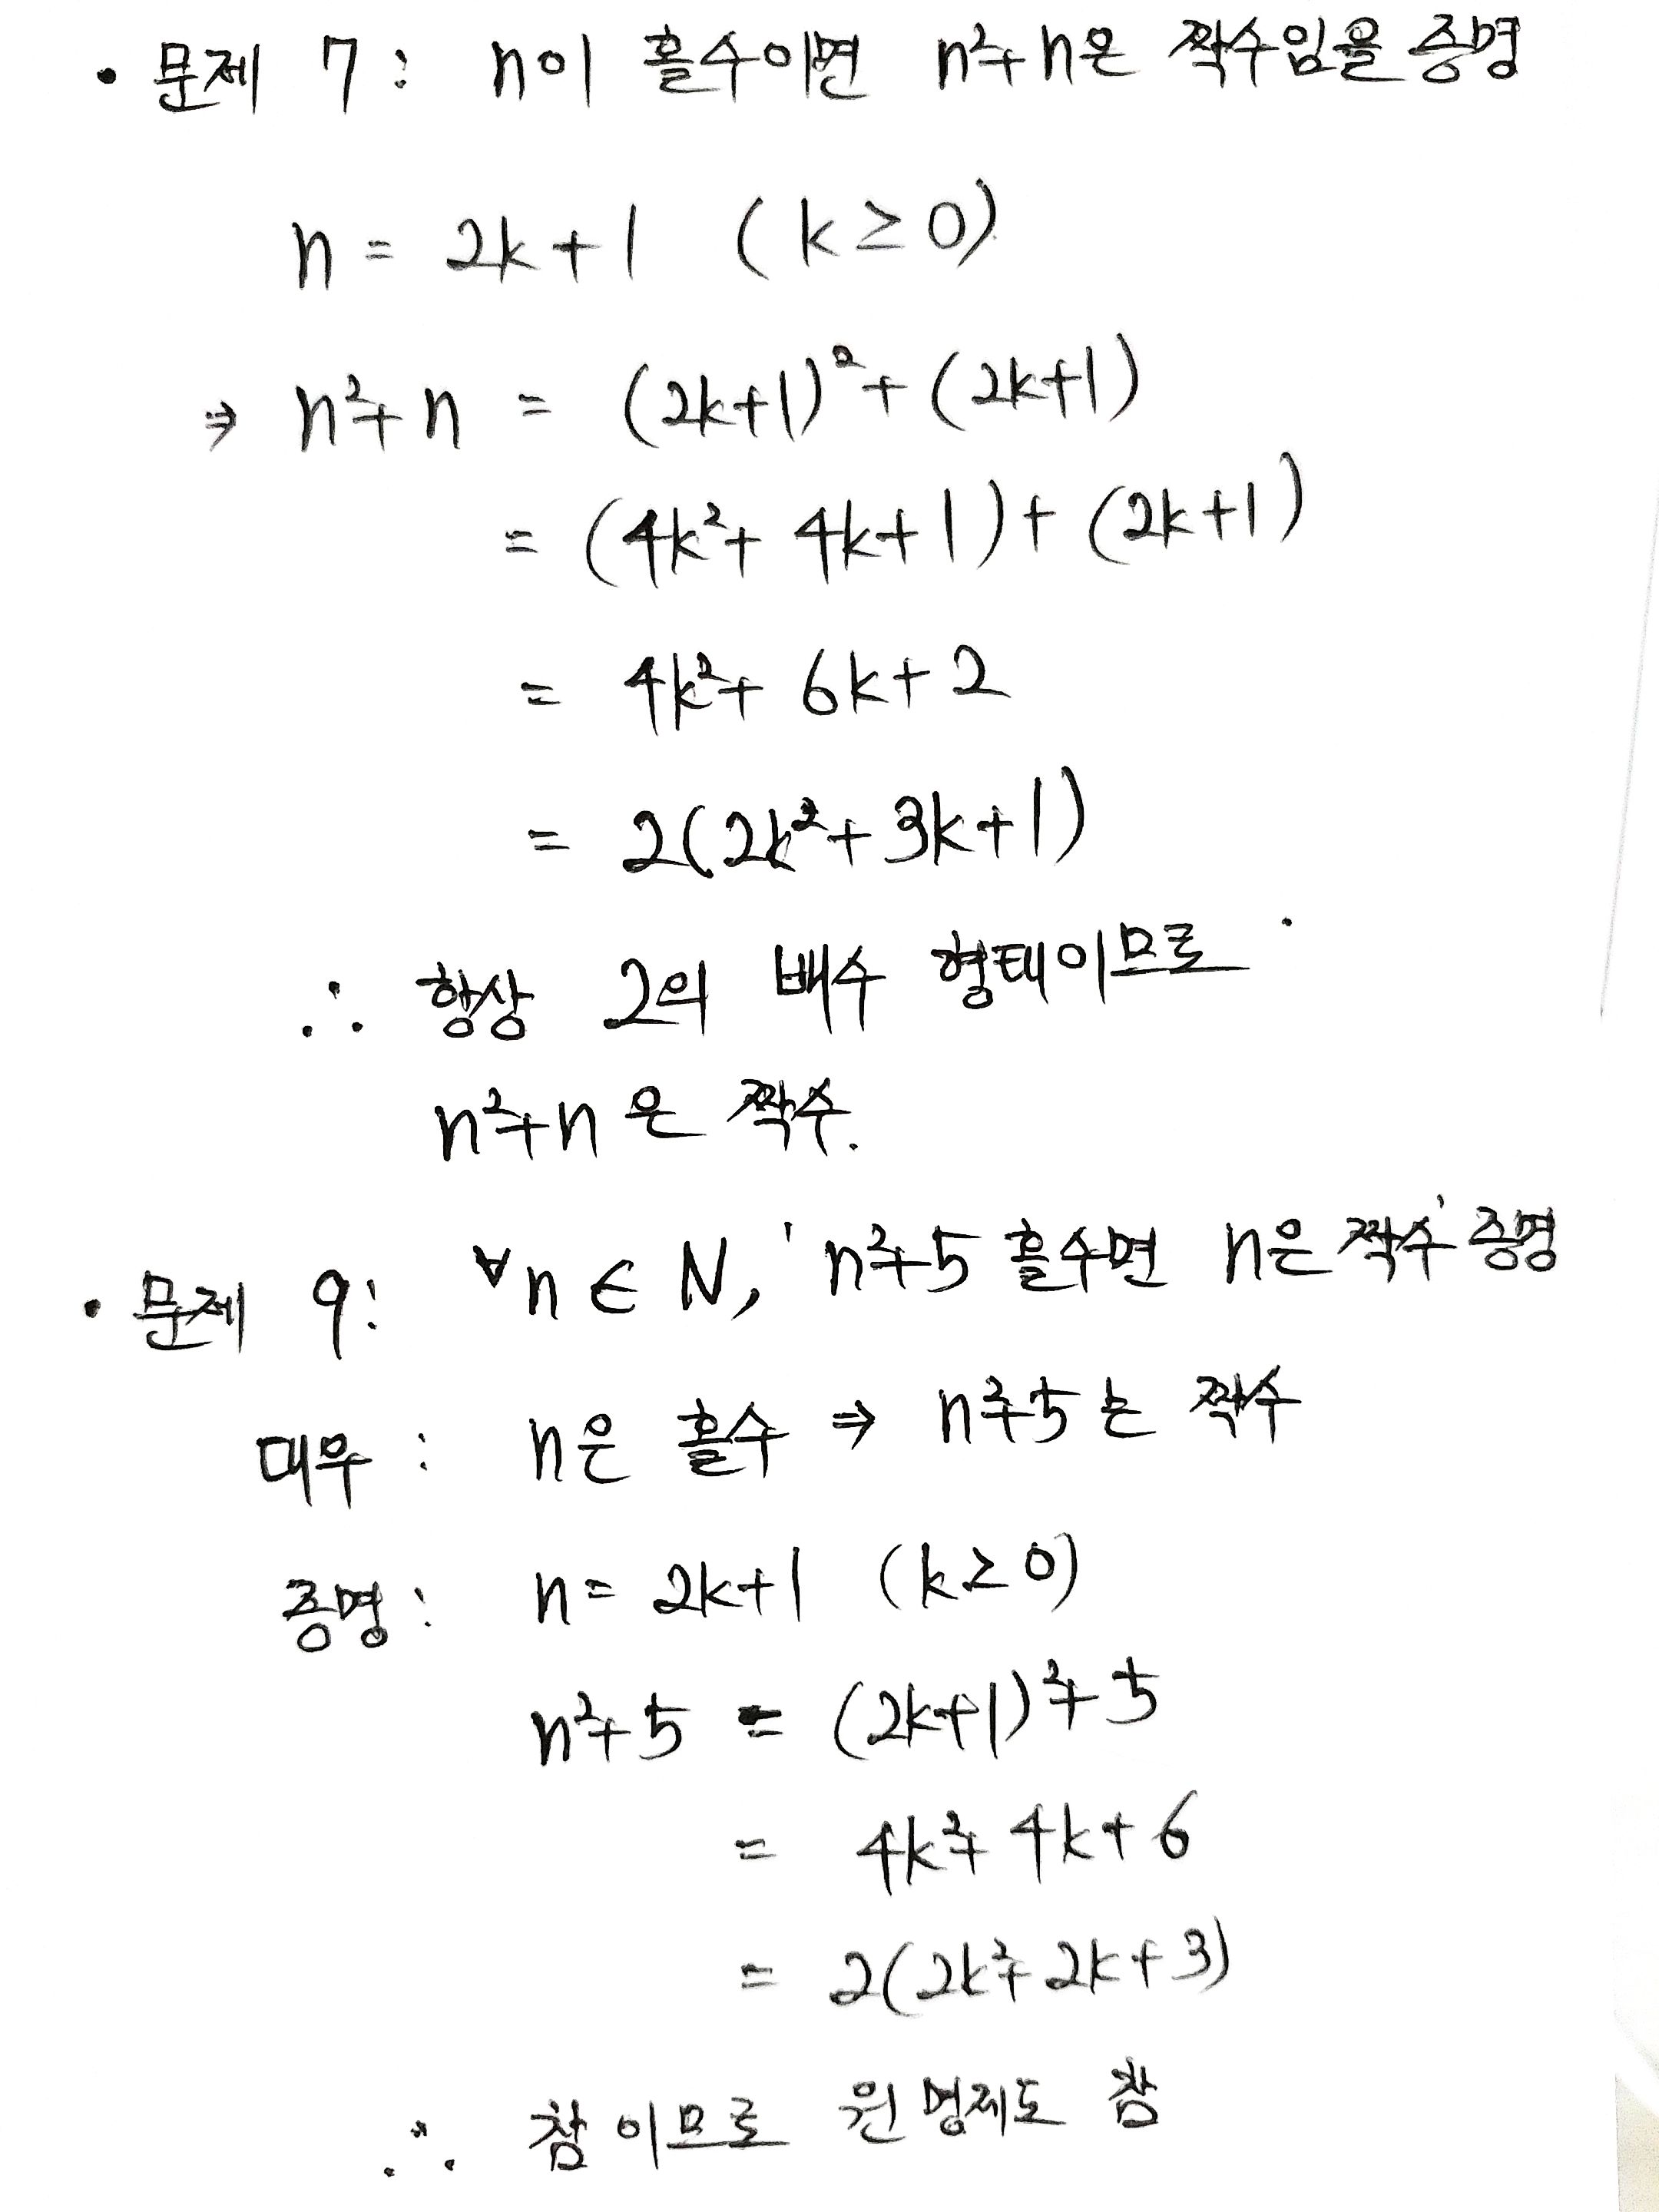 · 문제 7: n이 홀수이면 n²+n은 짝수임을 증명
n = 2k+1 (k≥0)
⇒ n²+n = (2k+1)²+(2k+1)
= (4k²+4k+1)+(2k+1)
= 4k²+6k+2
= 2(2k²+3k+1)
∴ 항상 2의 배수 형태이므로
n²+n은 짝수.
· 문제 9: ∀n∈N, 'n²+5 홀수면 n은 짝수' 증명
대우: n은 홀수 ⇒ n²+5는 짝수
증명: n= 2k+1 (k≥0)
n²+5 = (2k+1)²+5
= 4k²+4k+6
= 2(2k²+2k+3)
∴ 참이므로 원 명제도 참